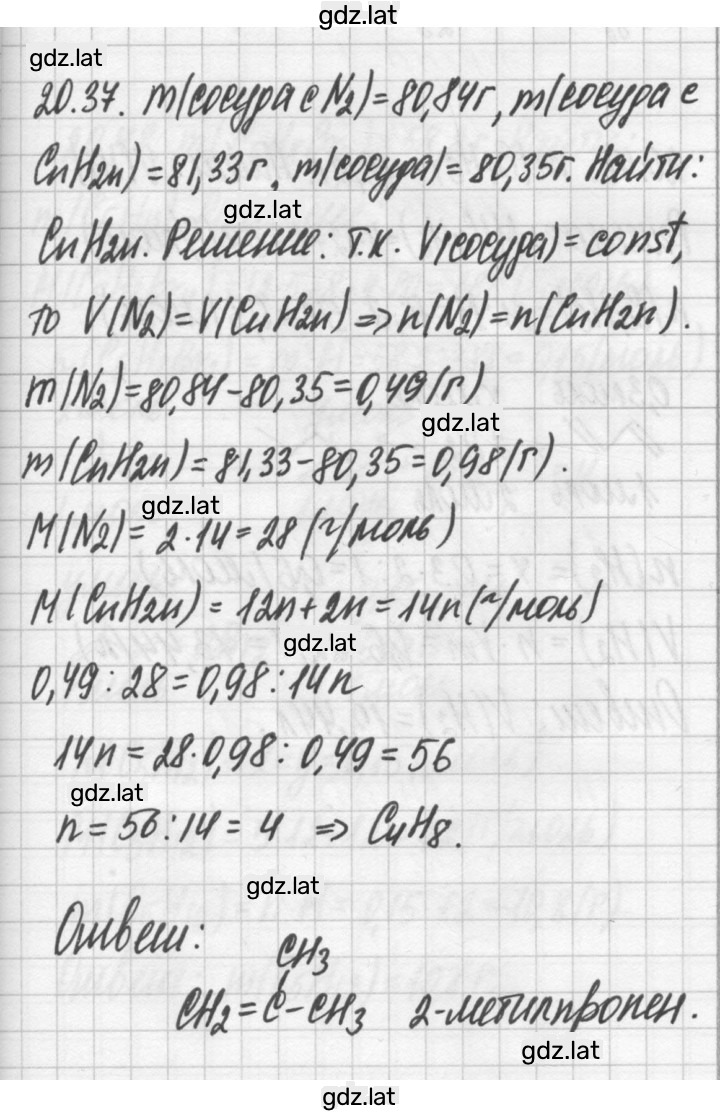 gdz.lat
gdz.lat
20.37. m(сосуда с N2)=80,84г, m(сосуда с
CnH2n)=81,33г, m(сосуда)=80,35г. Найти:
gdz.lat
CnH2n. Решение: т.к. V(сосуда)=const,
то V(N2)=V(CnH2n)=>n(N2)=n(CnH2n).
m(N2)=80,84-80,35=0,49(г)
gdz.lat
m(CnH2n)=81,33-80,35=0,98(г).
gdz.lat
M(N2)= 2·14=28(г/моль)
M(CnH2n)= 12n+2n=14n(г/моль)
gdz.lat
0,49:28=0,98:14n
14n=28·0,98:0,49=56
gdz.lat
n=56:14=4 => C4H8.
gdz.lat
Ответ:
CH3
CH2=C-CH3 2-метилпропен.
gdz.lat
gdz.lat